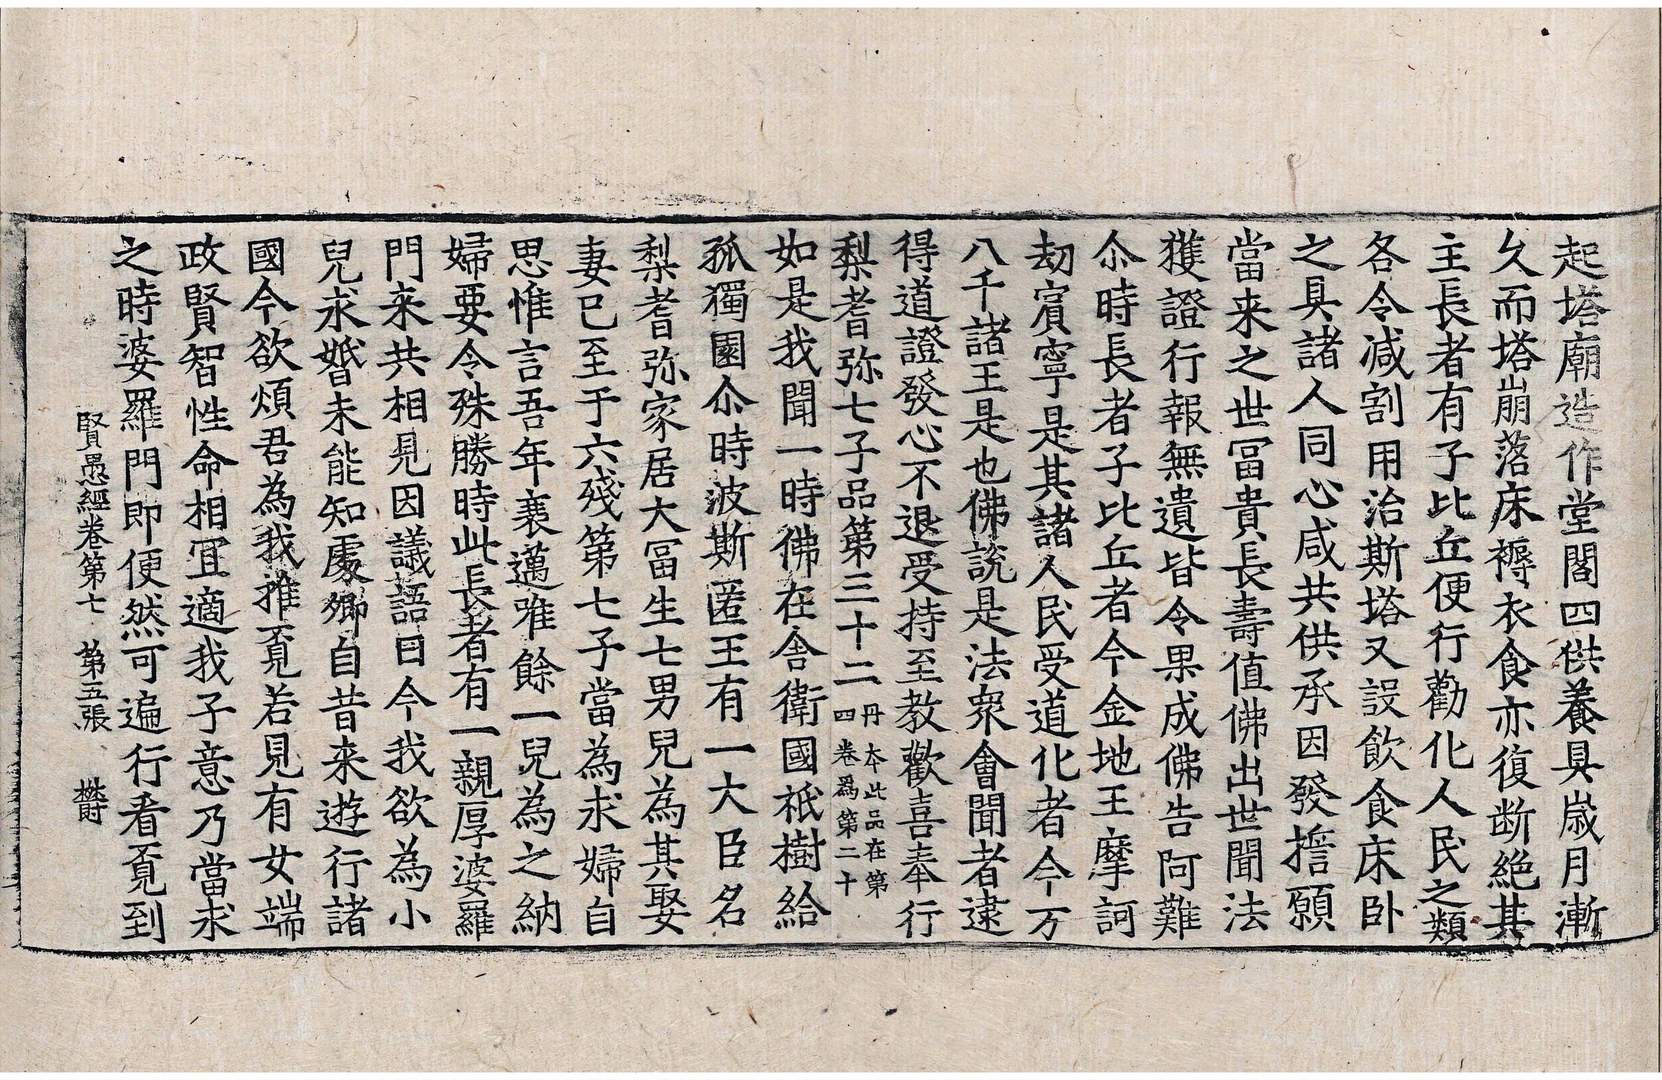 起塔廟造作堂閣四供養具歲月漸
久而塔崩落床褥衣食亦復断絶其
主長者有子比丘便行勸化人民之類
各令減割用治斯塔又設飲食床卧
之具諸人同心咸共供承因發擔願
當来之世冨貴長壽值佛出世聞法
獲證行報無遺皆令果成佛告阿難
尒時長者子比丘者今金地王摩訶
劫賔寧是其諸人民受道化者今万
八千諸王是也佛説是法衆會聞者逮
得道證發心不退受持至教歡喜奉行
梨耆弥七子品第三十二 丹本此品在第四卷爲第二十
如是我聞一時佛在舍衛國祇樹給
孤獨園尒時波斯匿王有一大臣名
梨耆弥家居大冨生七男兒為其娶
妻已至于六殘第七子當為求婦自
思惟言吾年衰邁唯餘一兒為之納
婦要令殊勝時此長者有一親厚婆羅
門来共相見因議語曰今我欲為小
兒求婚未能知處卿自昔来遊行諸
國今欲煩君為我推覔若見有女端
政賢智性命相冝適我子意乃當求
之時婆羅門即便然可遍行看覔到
賢愚經卷第七 第五張 欎